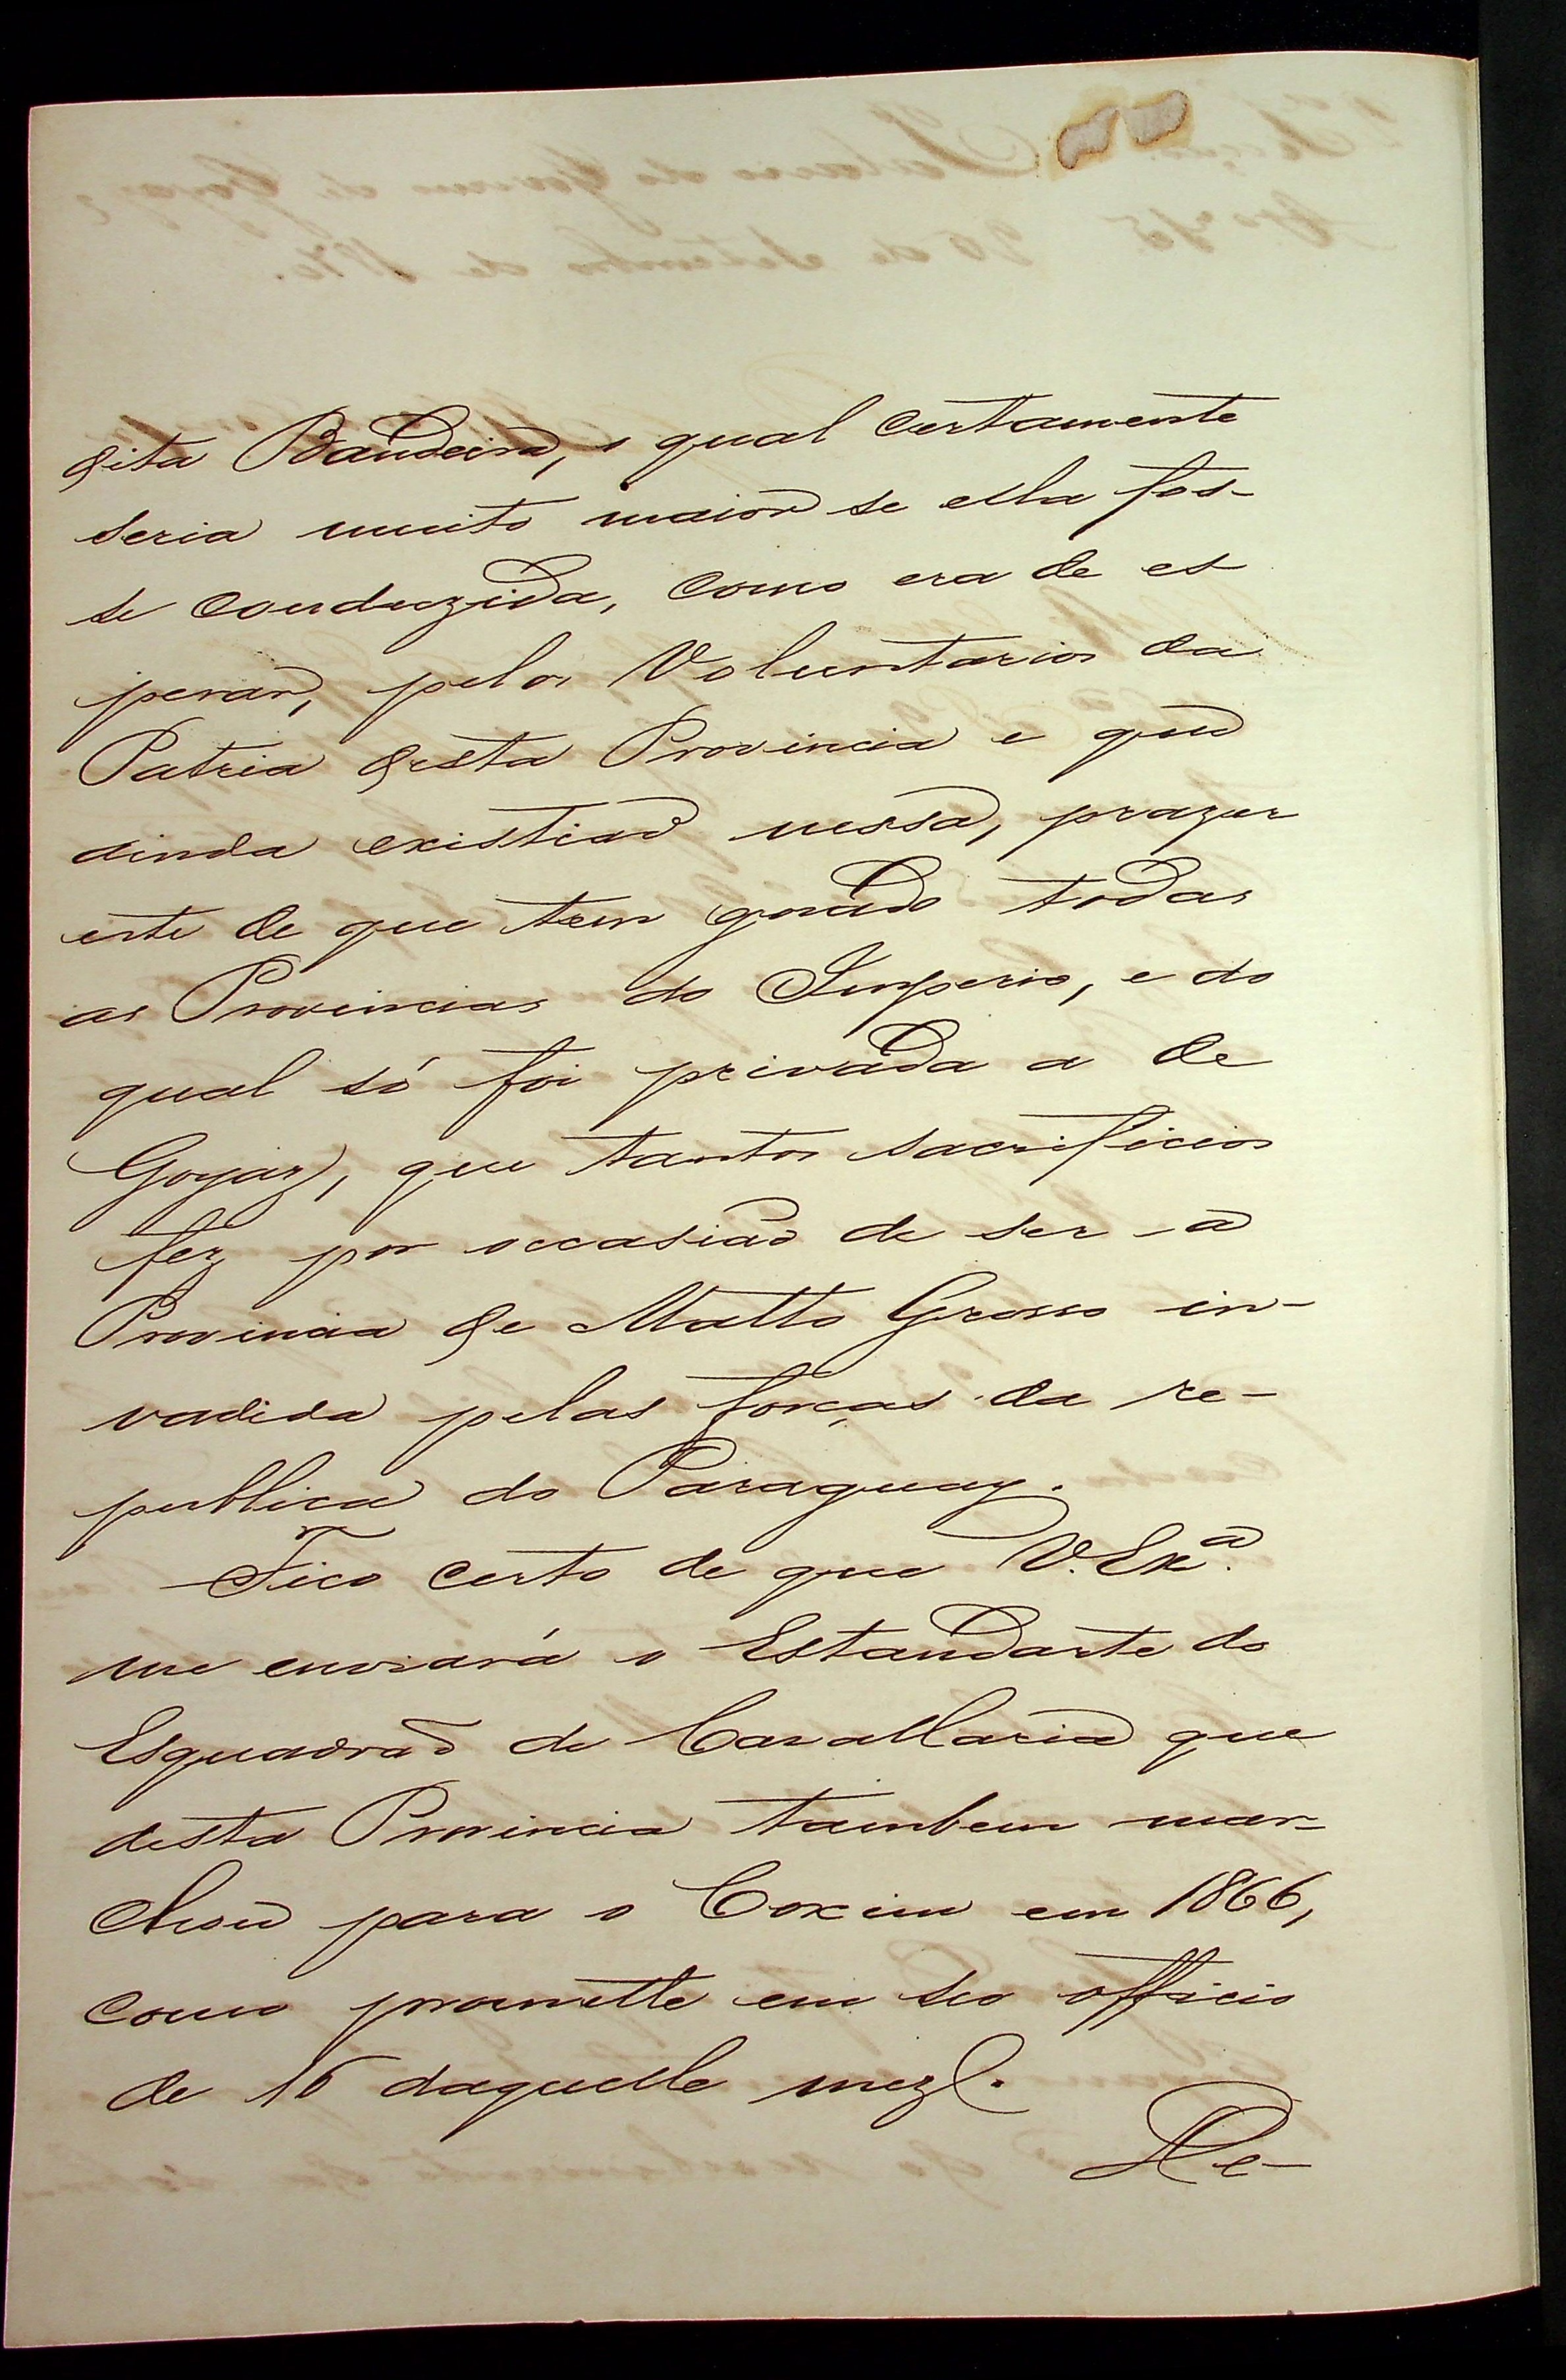 dita Bandeira, o qual certamente
seria muito maior se ella fos-
se conduzida, como era de es
perar, pelos Voluntarios da
Patria desta Provincia e que
ainda existiaõ nessa, prazer
este de que tem gosado todas
as Provincias do Imperio, e do
qual só foi privada a de
Goyaz, que tantos sacrificios
fez por occasiaõ de ser a
Provincia de Matto Grosso in-
vadida pelas forças da re-
publica do Paraguay.
Fico certo de que V. Exª.
me enviará o Estandarte do
Esquadraõ de Cavallaria que
desta Provincia tambem mar-
chou para o Coxim em 1866,
como promette em seo officio
de 16 daquelle mez.
Re-